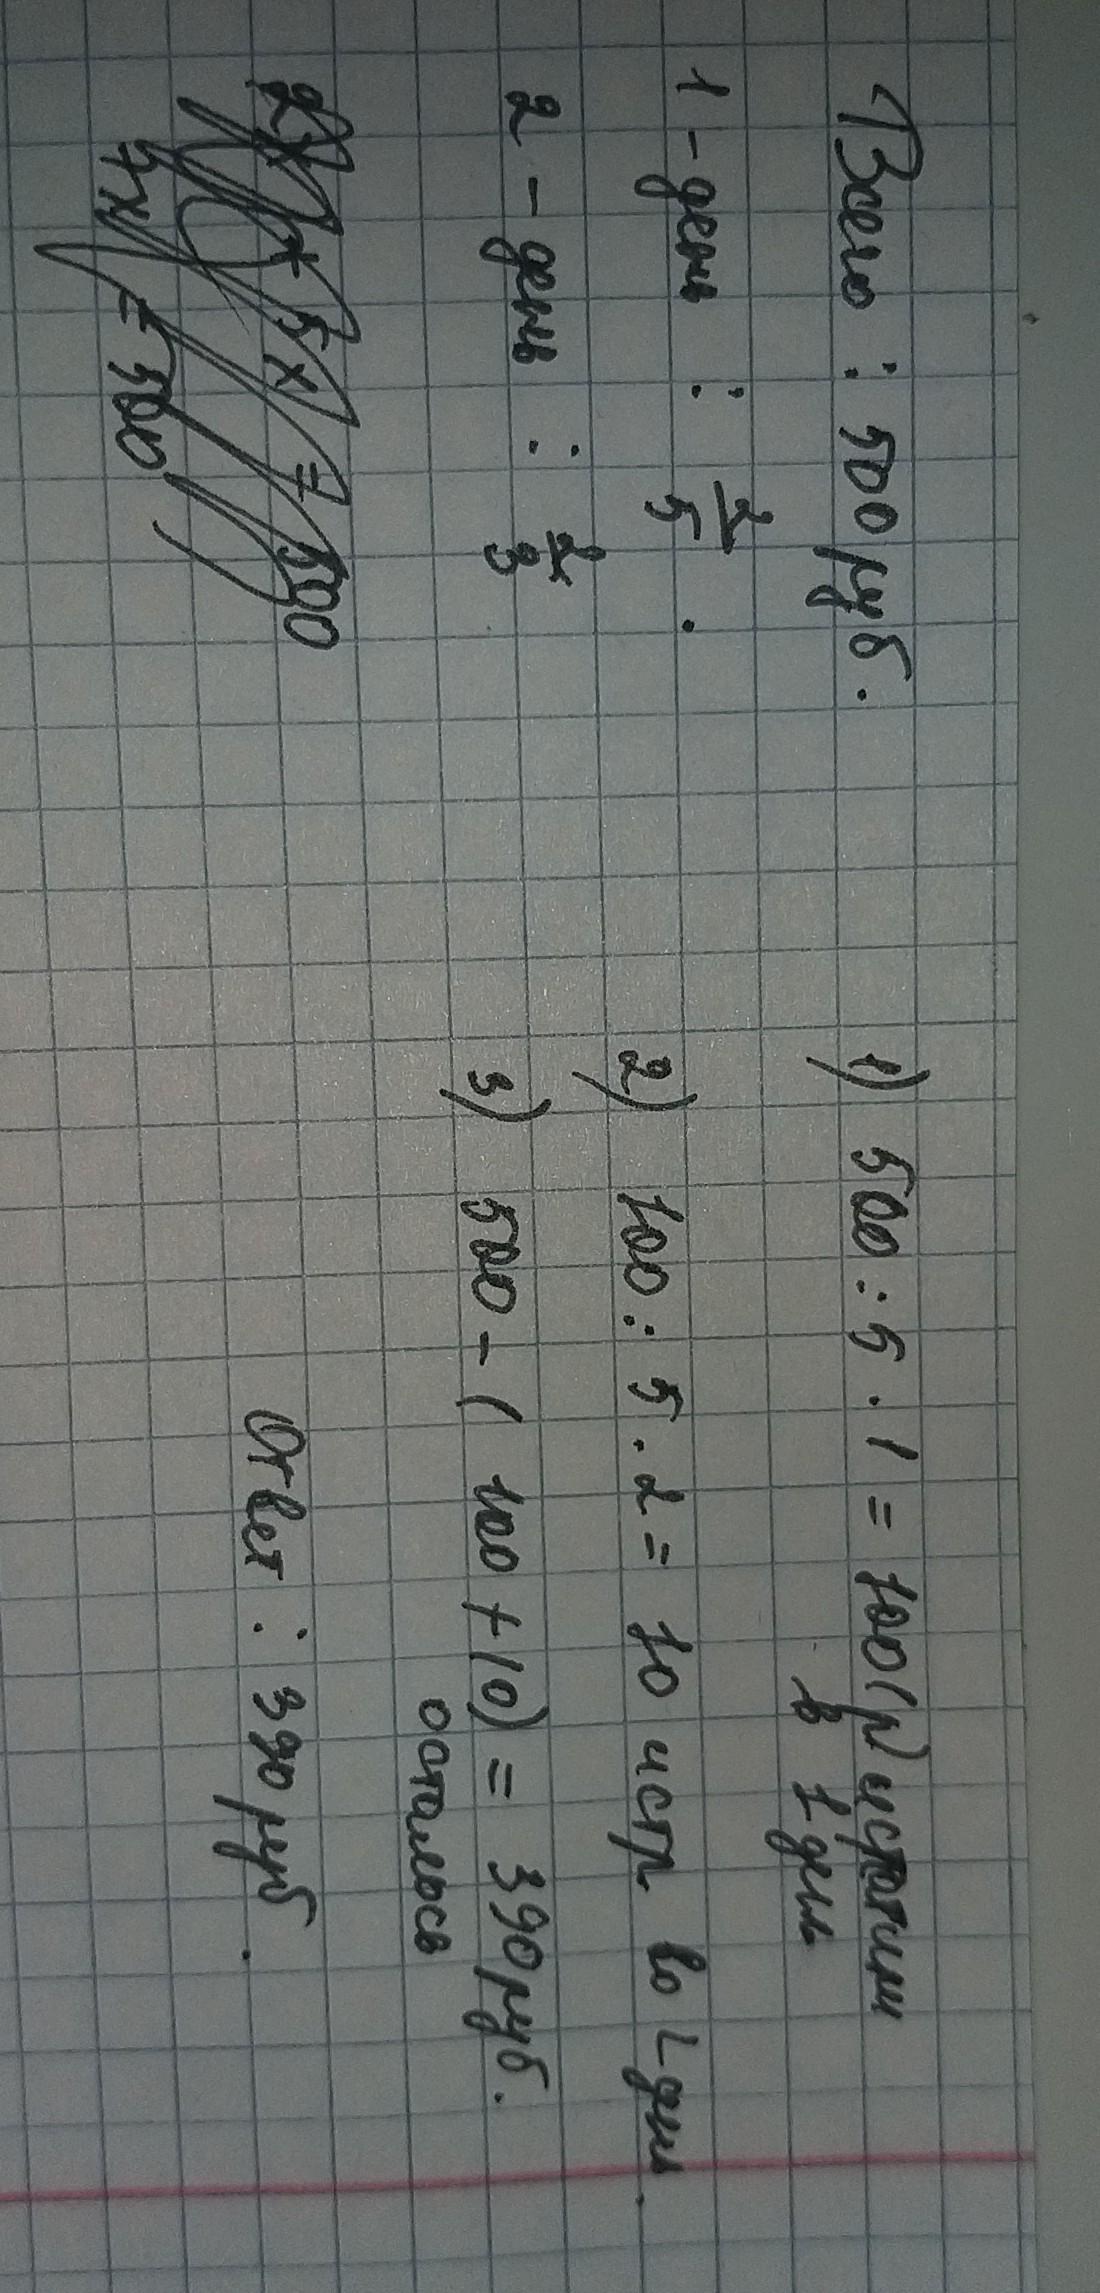 Всего : 500 руб.
1 - день : 2/5 .
2 - день : 2/3
2x + 5x = 500
7x = 500
1) 500 : 5 · 1 = 100 (р) истратили
в 1 день
2) 100 : 5 · 2 = 10 истр во 2 день.
3) 500 - ( 100 + 10) = 390 руб.
осталось
Ответ : 390 руб.